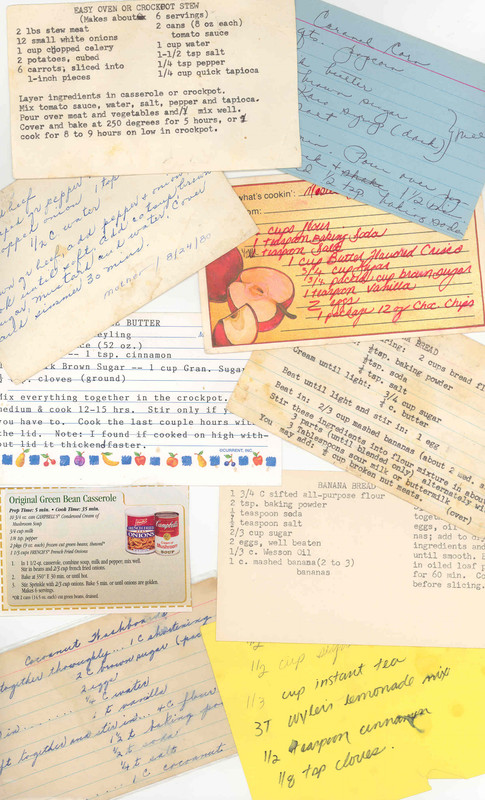 EASY OVEN OR CROCKPOT STEW
(Makes about 6 servings)
2 lbs stew meat
12 small white onions
1 cup chopped celery
2 potatoes, cubed
6 carrots, sliced into
1-inch pieces
2 cans (8 oz each)
tomato sauce
1 cup water
1-1/2 tsp salt
1/4 tsp pepper
1/4 cup quick tapioca
Layer ingredients in casserole or crockpot.
Mix tomato sauce, water, salt, pepper and tapioca.
Pour over meat and vegetables and mix well.
Cover and bake at 250 degrees for 5 hours, or
cook for 8 to 9 hours on low in crockpot.
Caramel Corn
qts. popcorn
butter
brown sugar
syrup (dark)
Pour over
1/2 tsp baking soda
beef
pepper
onion 1 tsp
1/2 C water
beef, add pepper & onion
until soft. Add soup, brown
sugar, mustard and water. Cover
and simmer 30 mins.
mother 1/24/80
what's cookin':
cups flour
1 teaspoon Baking Soda
1 teaspoon Salt
1 cup Butter Flavored Crisco
3/4 cup sugar
3/4 packed cup brown sugar
1 teaspoon vanilla
2 eggs
1 package 12 oz Choc. Chips
BUTTER
(52 oz.)
-- 1 tsp. cinnamon
Brown Sugar -- 1 cup Gran. Sugar
cloves (ground)
Mix everything together in the crockpot.
medium & cook 12-15 hrs. Stir only if
you have to. Cook the last couple hours with
the lid. Note: I found if cooked on high with-
out lid it thickened faster.
©CURRENT, INC.
BREAD
2 cups bread
tsp. baking powder
tsp. soda
tsp. salt
Cream until light: 3/4 cup sugar
c. butter
Beat until light and stir in: 1 egg
Beat in: 2/3 cup mashed bananas (about 2 med. size
Stir these ingredients into flour mixture in about
3 parts (until blended only) alternately with
3 tablespoons sour milk or buttermilk
You may add: cup broken nut meats. (over)
Original Green Bean Casserole
Prep Time: 5 min. • Cook Time: 35 min.
10 3/4 oz. can CAMPBELL'S® Condensed Cream of
Mushroom Soup
3/4 cup milk
1/8 tsp. pepper
2 pkgs (9 oz. each) frozen cut green beans, thawed*
1 1/3 cups FRENCH'S® French Fried Onions
1. In 1 1/2-qt. casserole, combine soup, milk and pepper; mix well.
Stir in beans and 2/3 cup french fried onions.
2. Bake at 350° F 30 min. or until hot.
3. Stir. Sprinkle with 2/3 cup onions. Bake 5 min. or until onions are golden.
Makes 6 servings.
*OR 2 cans (14.5 oz. each) cut green beans, drained.
French's
ONIONS
Campbell's
BANANA BREAD
1 3/4 C sifted all-purpose flour
2 tsp. baking powder
teaspoon soda
teaspoon salt
2/3 cup sugar
eggs, well beaten
1/3 C. Wesson Oil
1 c. mashed banana(2 to 3)
bananas
together
eggs, oil
nas; add to dry
ingredients and
until smooth.
in oiled loaf p
for 60 min. Co
before slicing.
Cocoanut
together thoroughly... 1 C shortening
2 C brown sugar
2 eggs
C water
t vanilla
together and stir in... 4 C flour
t baking
t soda
t salt
1 C cocoanut
1/2 cup
1/3 cup instant tea
3T Wyler's lemonade mix
1/2 teaspoon cinnamon
1/8 tsp cloves.